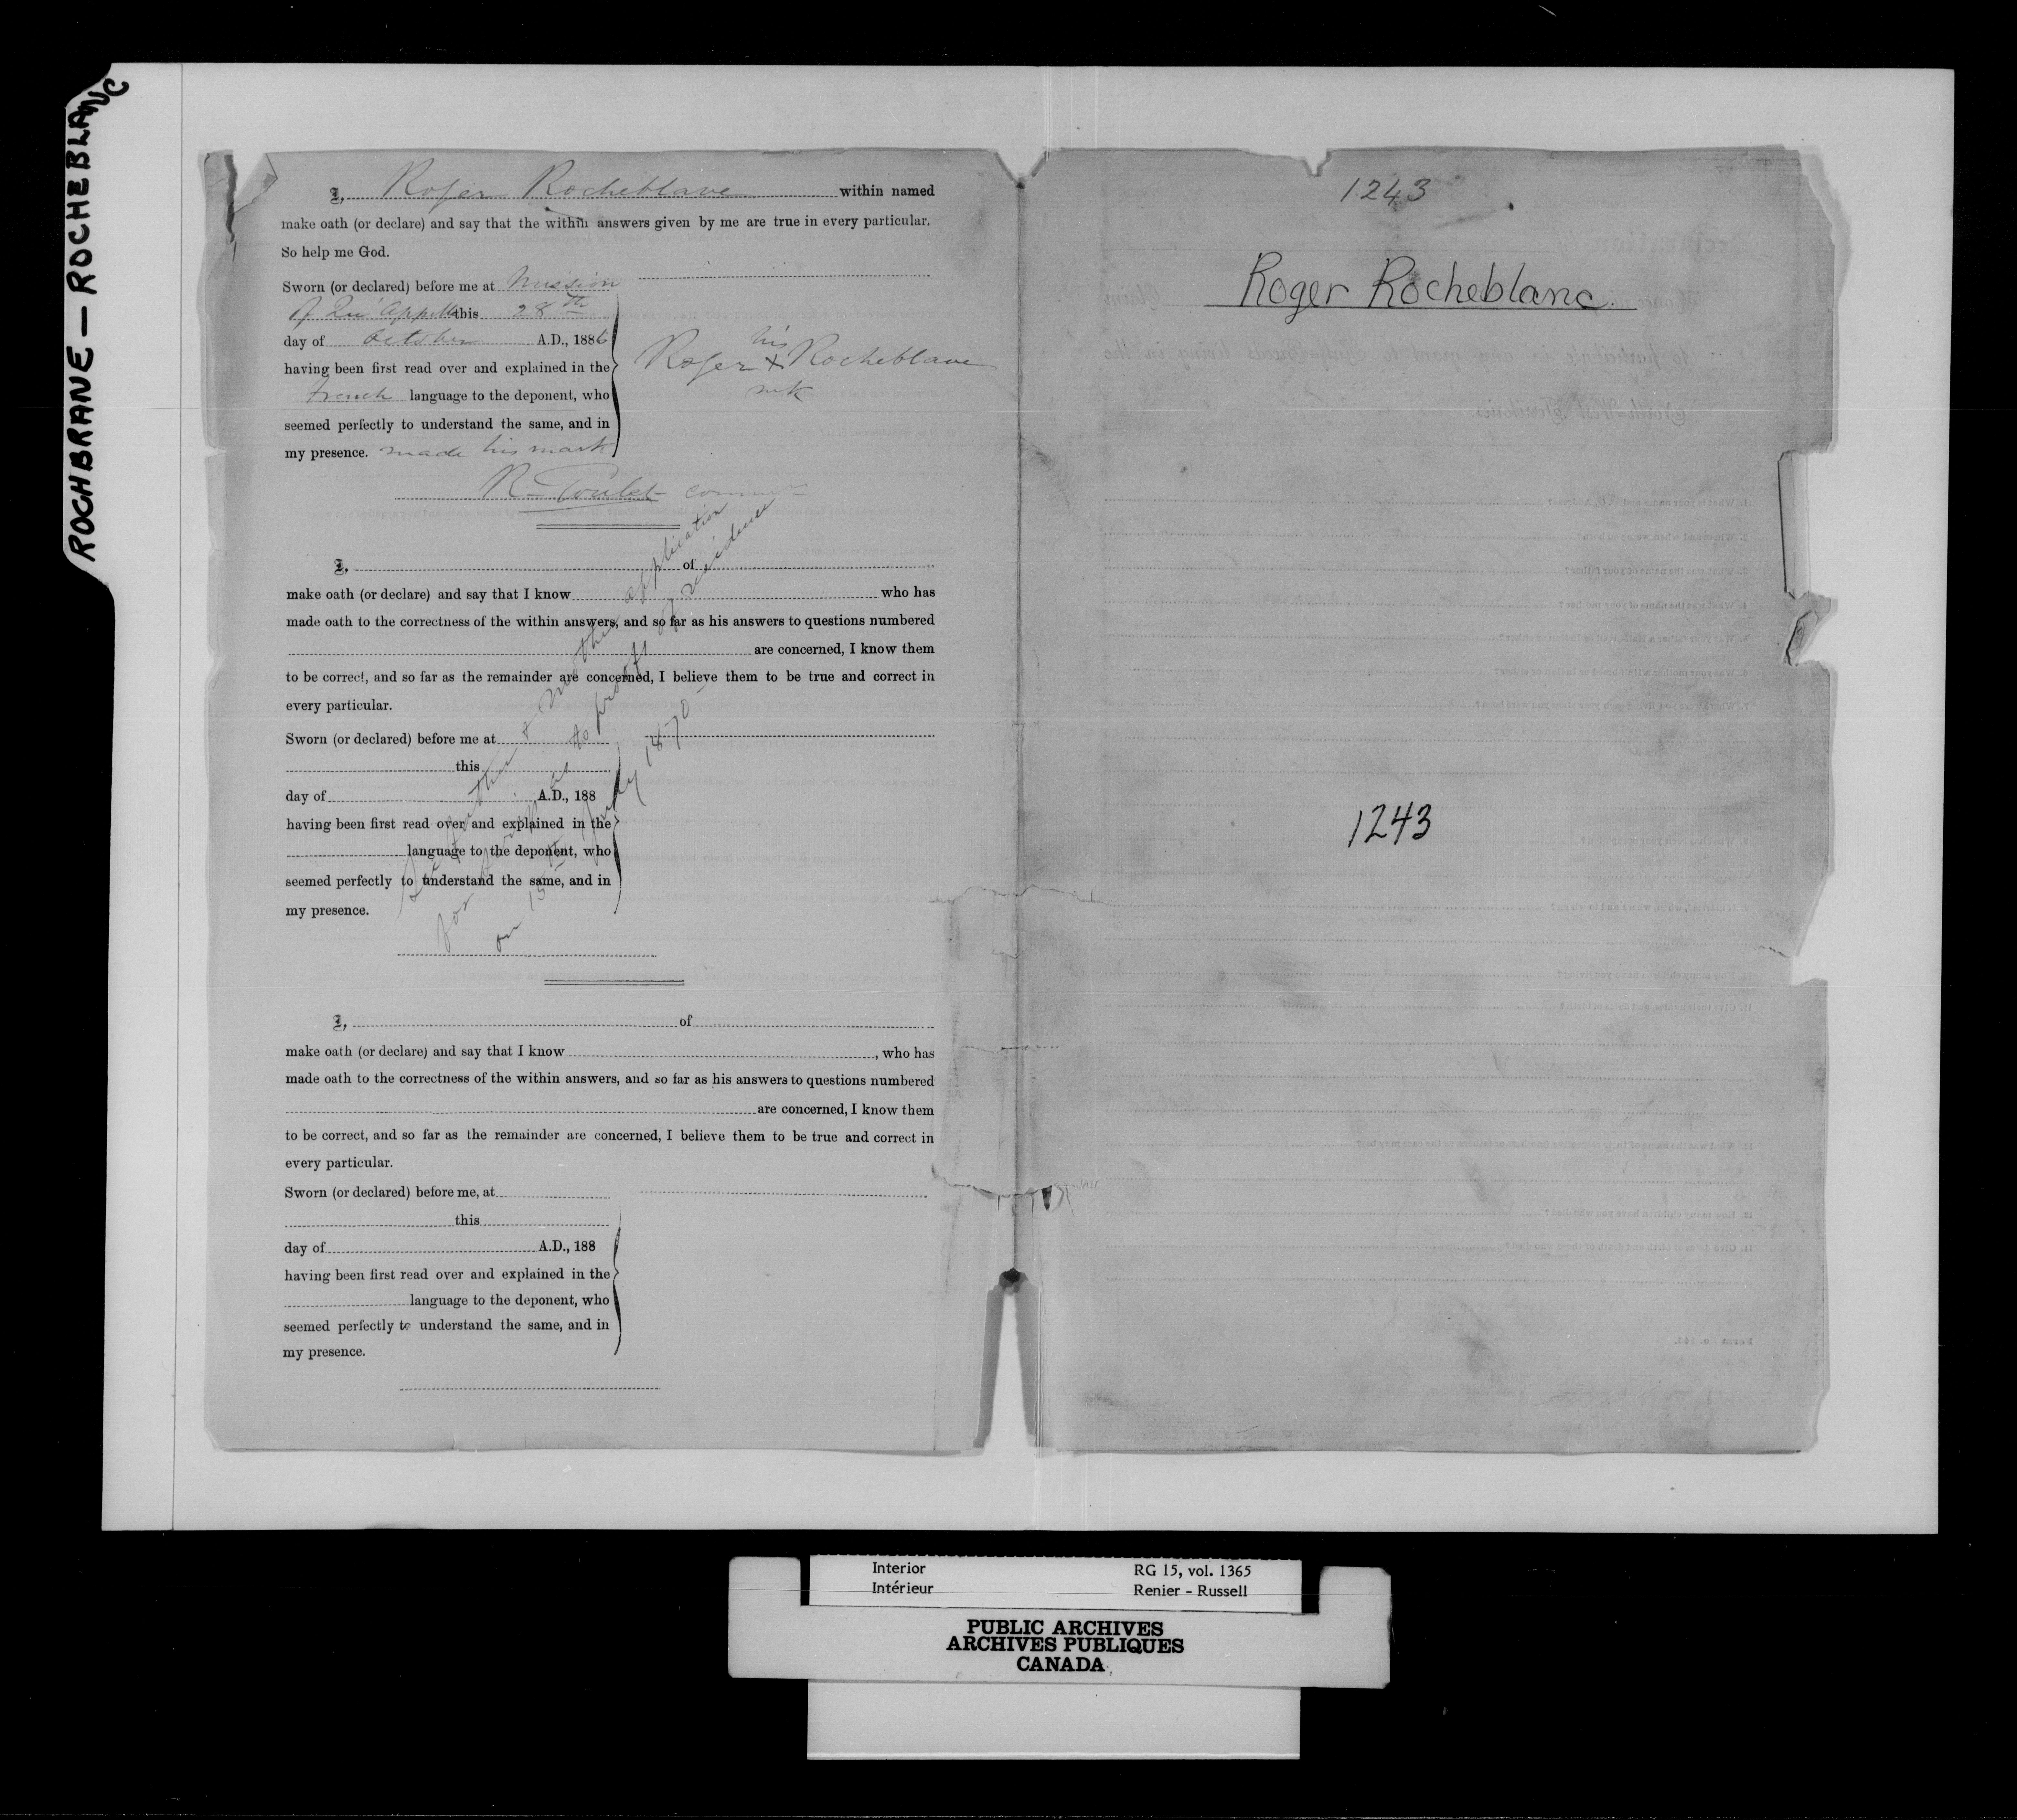 ROCHBRANE — ROCHEBLANC
I, Roger Rocheblave within named
make oath (or declare) and say that the within answers given by me are true in every particular.
So help me God.
Sworn (or declared) before me at Mission
of Qu'Appelle this 28th
day of October A.D., 1886
having been first read over and explained in the
french language to the deponent, who
seemed perfectly to understand the same, and in
my presence. made his mark
his
Roger X Rocheblave
mk
R Goulet
See father & mother application
for proof as to proof of residence
on 15th July 1870
I, of
make oath (or declare) and say that I know who has
made oath to the correctness of the within answers, and so far as his answers to questions numbered
are concerned, I know them
to be correct, and so far as the remainder are concerned, I believe them to be true and correct in
every particular.
Sworn (or declared) before me at
this
day of A.D., 188
having been first read over and explained in the
language to the deponent, who
seemed perfectly to understand the same, and in
my presence.
I, of
make oath (or declare) and say that I know , who has
made oath to the correctness of the within answers, and so far as his answers to questions numbered
are concerned, I know them
to be correct, and so far as the remainder are concerned, I believe them to be true and correct in
every particular.
Sworn (or declared) before me, at
this
day of A.D., 188
having been first read over and explained in the
language to the deponent, who
seemed perfectly to understand the same, and in
my presence.
1243
Roger Rocheblanc.
1243
Interior RG 15, vol. 1365
Intérieur Renier - Russell
PUBLIC ARCHIVES
ARCHIVES PUBLIQUES
CANADA